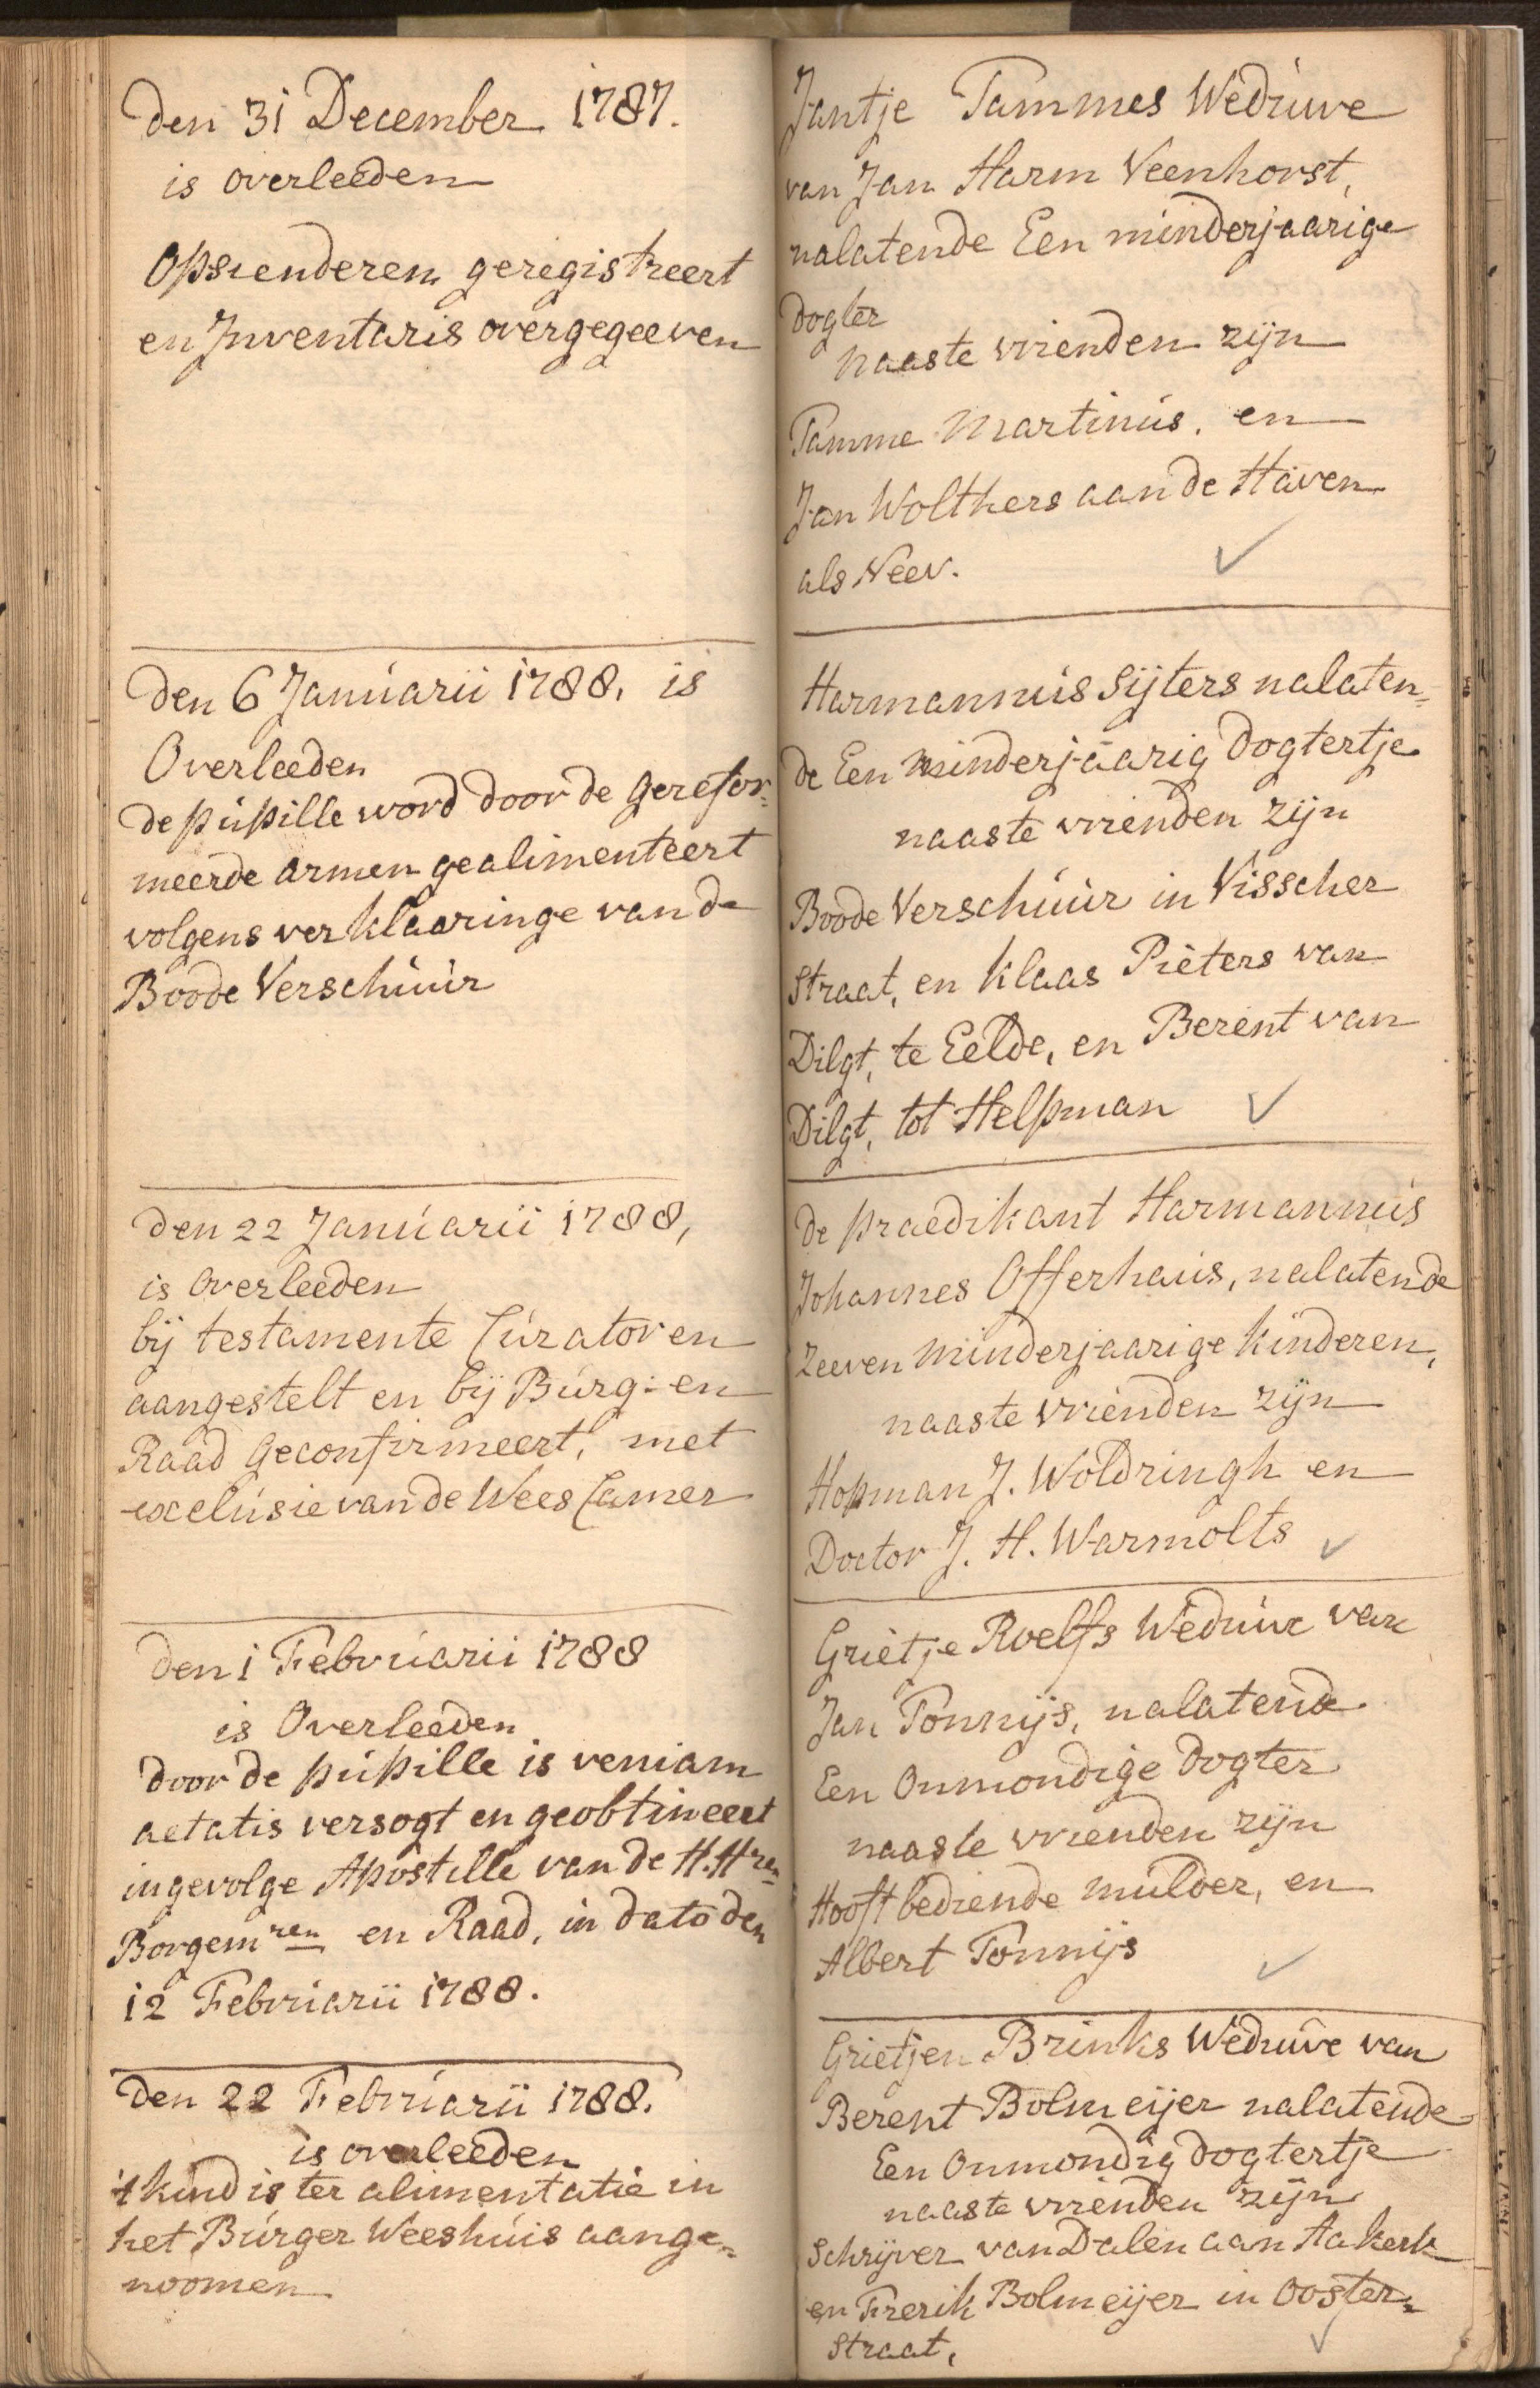 Den 31 December 1787.
is overleeden
Opsienderen geregistreert
en Inventaris overgegeeven
Den 6 Januarii 1788, is
Overleeden
de pupille word door de gerefor=
meerde armen gealimenteert
volgens verklaaringe van de
Boode Verschuur
Den 22 Januarii 1788,
is Overleeden
bij testamente Curatoren
aangestelt en bij Burg: en
Raad geconfirmeert, met
exclusie van de Wees Camer
Den 1 Februarii 1788
is Overleeden
door de pupille is veniam
aetatis versogt en geobtineert
ingevolge Apostille van de H.Hren
Borgemren en Raad, in dato den
12 Februarii 1788.
Den 22 Februarii 1788.
is overleeden
't kind is ter alimentatie in
het Burger Weeshuis aange=
noomen
Jantje Tammes Weduwe
van Jan Harm Veenhorst,
nalatende Een minderjaarige
Dogter
naaste vrienden zijn
Tamme Martinus, en
Jan Wolthers aan de Haven
als Neev.
Harmannus Sijters nalaten=
de Een minderjaarig Dogtertje
naaste vrienden zijn
Boode Verschuur in Visscher
straat, en Klaas Pieters van
Dilgt, te Eelde, en Berent van
Dilgt, tot Helpman
de praedikant Harmannus
Johannes Offerhaus, nalatende
Zeeven minderjaarige kinderen,
naaste vrienden zijn
Hopman J. Woldringh en
Doctor J. H. Warmolts
Grietje Roelfs Weduwe van
Jan Tonnijs, nalatende
Een Onmondige Dogter
naaste vrienden zijn
Hooftbediende Mulder, en
Albert Tonnijs
Grietjen Brinks Weduwe van
Berent Bolmeijer nalatende
Een Onmondig Dogtertje
naaste vrienden zijn
Schrijver van Dalen aan Aakerk
en Frerik Bolmeijer in Ooster=
straat,